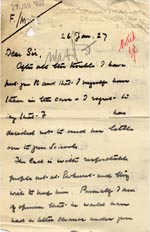 F/
26 Jan. 27
Dear Sir,
After all the trouble I have
put you to and that I myself have
taken in the case — I regret to
say that F has
decided not to send her little
son to your School.
The Lad is under respectable
people out at and they
wish to keep him. Personally I am
of opinion that he would have
had a better chance under your